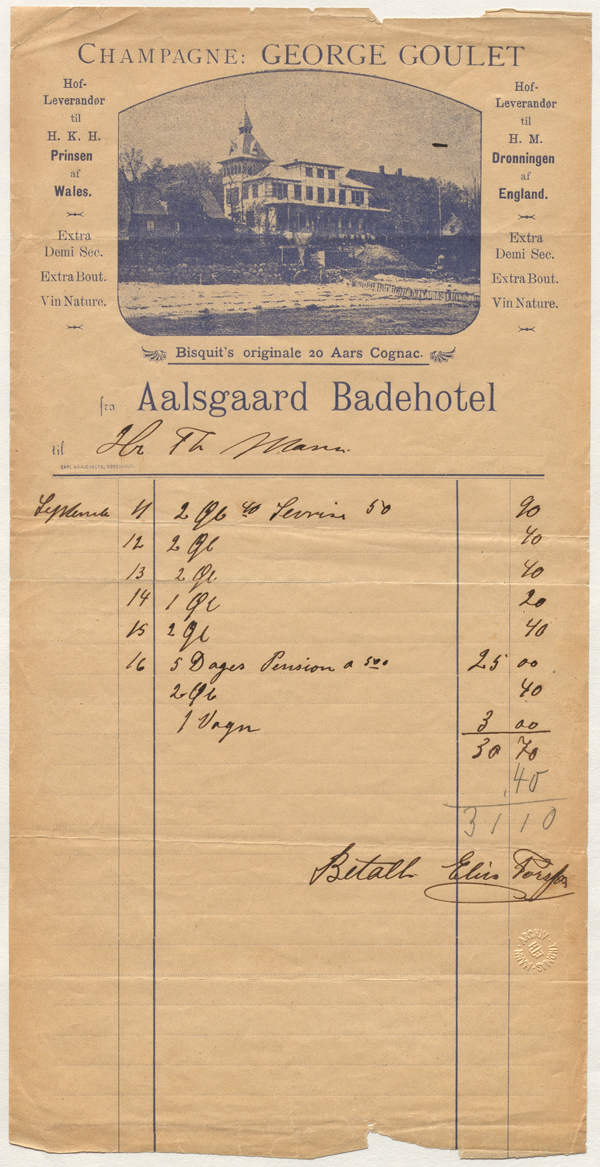 CHAMPAGNE: GEORGE GOULET
Hof-
Leverandør
til
H. K. H.
Prinsen
af
Wales.
Extra
Demi Sec.
Extra Bout.
Vin Nature.
Hof-
Leverandør
til
H. M.
Dronningen
af
England.
Extra
Demi Sec.
Extra Bout.
Vin Nature.
Bisquit's originale 20 Aars Cognac.
fra Aalsgaard Badehotel
til Hr Th Mann
September 11 2 Øl 40 50 90
12 2 Øl 40
13 2 Øl 40
14 1 Øl 20
15 2 Øl 40
16 5 Dages Pension a 500 25 00
2 Øl 40
1 Vogn 3 00
30 70
.40
31 10
Betalt